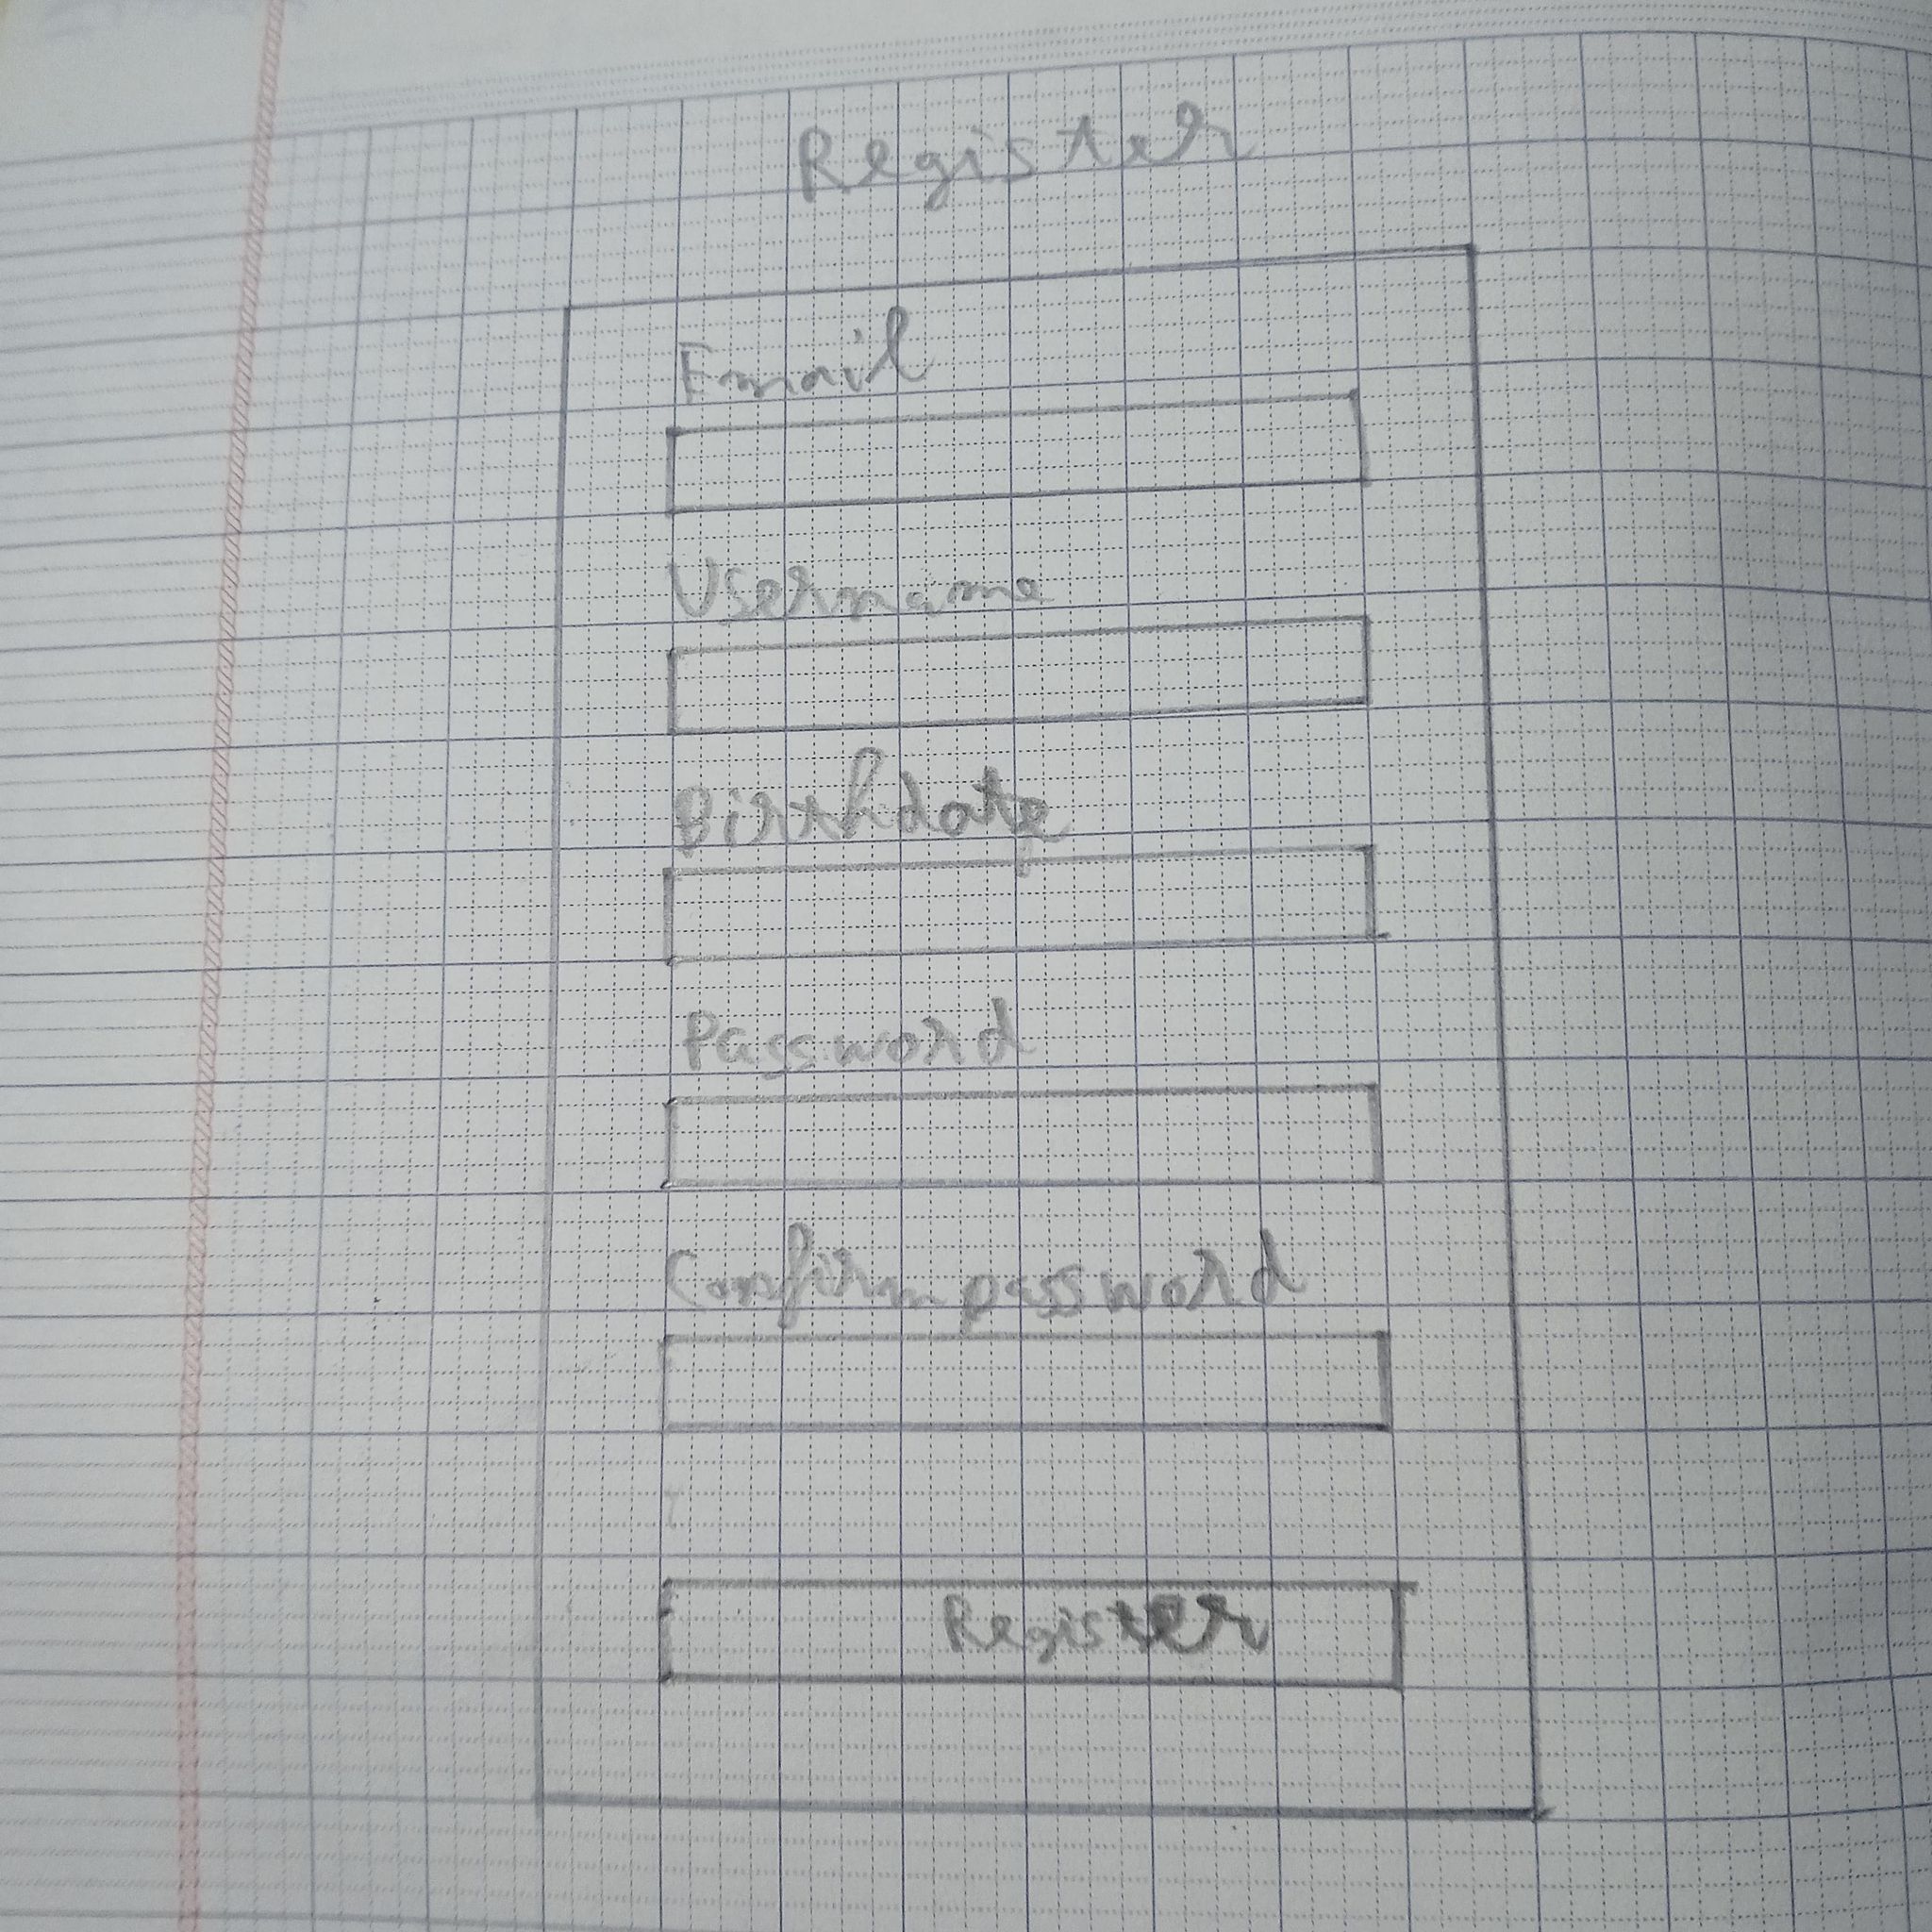 Register
Email
Username
Birthdate
Password
Confirm password
Register